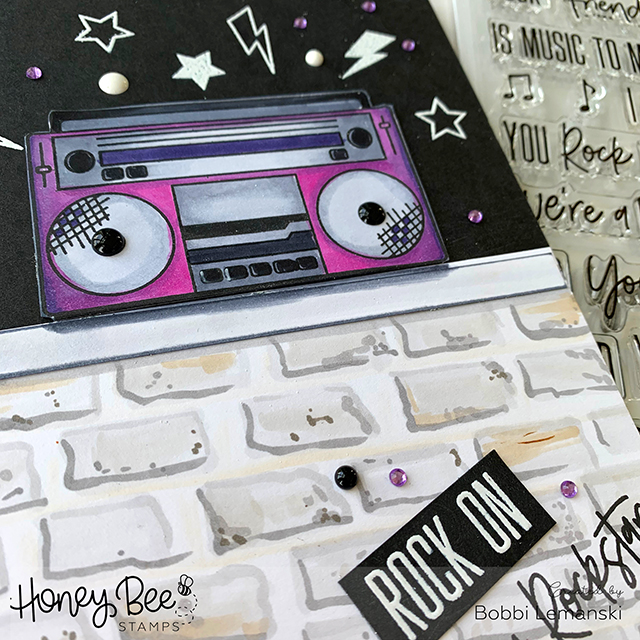 friend
IS MUSIC TO M
I
YOU Rock
we're a
You
ROCK ON
Rockstar
Honey Bee
STAMPS
Created by
Bobbi Lemanski